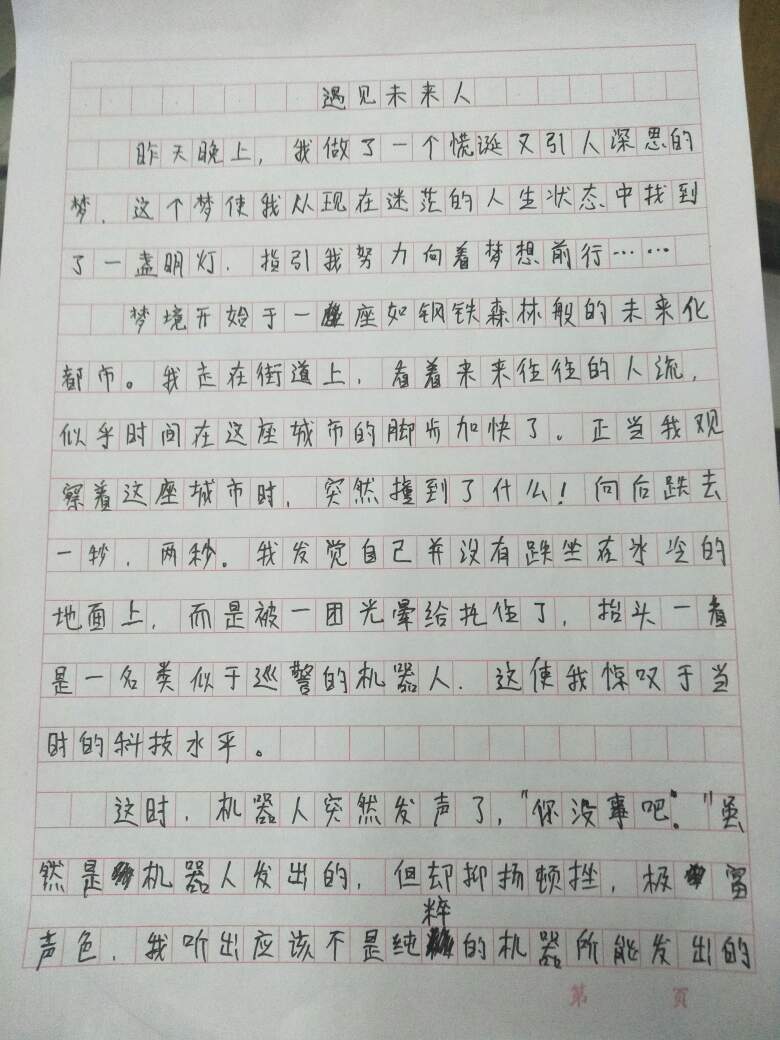 遇见未来人
昨天晚上，我做了一个慌诞又引人深思的
梦，这个梦使我从现在迷茫的人生状态中找到
了一盏明灯，指引我努力向着梦想前行……
梦境开始于一座如钢铁森林般的未来化
都市。我走在街道上，看着来来往往的人流，
似乎时间在这座城市的脚步加快了。正当我观
察着这座城市时，突然撞到了什么！向后跌去
一秒，两秒。我发觉自己并没有跌坐在冰冷的
地面上，而是被一团光晕给托住了，抬头一看
是一名类似于巡警的机器人，这使我惊叹于当
时的科技水平。
这时，机器人突然发声了，“你没事吧.”虽
然是机器人发出的，但却抑扬顿挫，极富
声色，我听出应该不是纯粹的机器所能发出的
第 页